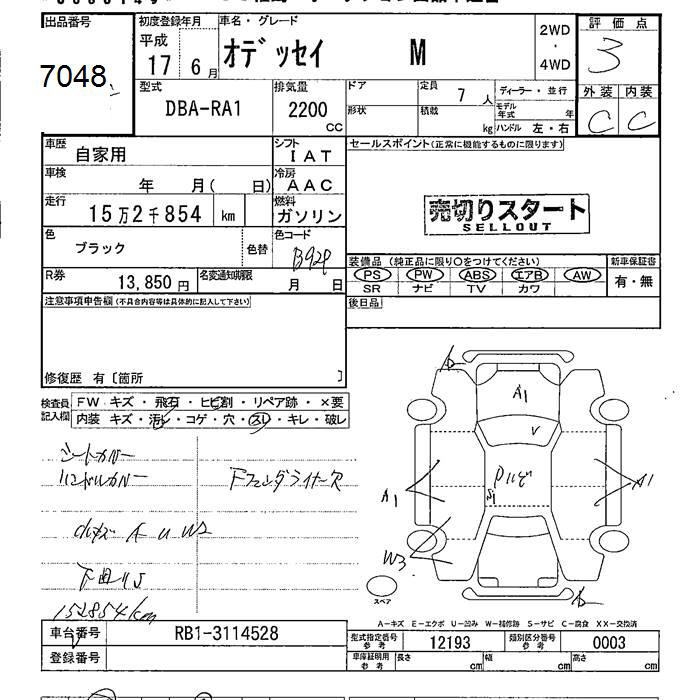 出品番号 初度登録年月 車名・グレード 2WD・4WD 評価点
7048
平成 17 6月 オデッセイ M 3
型式 排気量 ドア 定員 7 人 ディーラー・並行 外装 内装
DBA-RA1 2200 CC 形状 積載 kg モデル年式 年 C C
ハンドル 左・右
車歴 自家用 シフト IAT セールスポイント(正常に機能するものに限ります)
車検 年 月( 日) 冷房 AAC
走行 15万2千854 km 燃料 ガソリン
売切りスタート
SELLOUT
色 ブラック 色替 色コード B92P
装備品(純正品に限り○をつけてください) 新車保証書
PS PW ABS エアB AW 有・無
SR ナビ TV カワ
R券 13,850円 名変通知期限 月 日
後日品
注意事項申告欄(不具合内容等は具体的に記入して下さい)
修復歴 有〔箇所 〕
検査員記入欄 FW キズ・飛石・ヒビ割・リペア跡・×要
内装 キズ・汚レ・コゲ・穴・スレ・キレ・破レ
A1
V
シートカバー
ハンドルカバー Fフェンダライナー欠
A1 A1
小キズ A U W2
W3
下回りS
スペア
152854km
A-キズ E-エクボ U-凹み W-補修跡 S-サビ C-腐食 XX-交換済
車台番号 RB1-3114528 型式指定番号 参考 12193 類別区分番号 参考 0003
登録番号 車庫証明用 参考 長さ cm 幅 cm 高さ cm